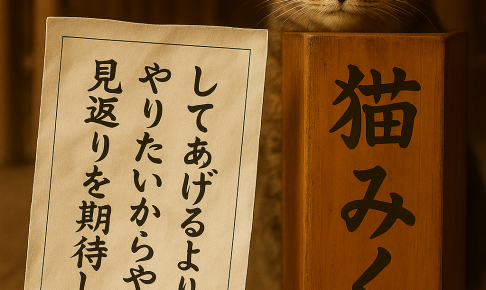 猫みく
してあげるより
やりたいからや
見返りを期待し